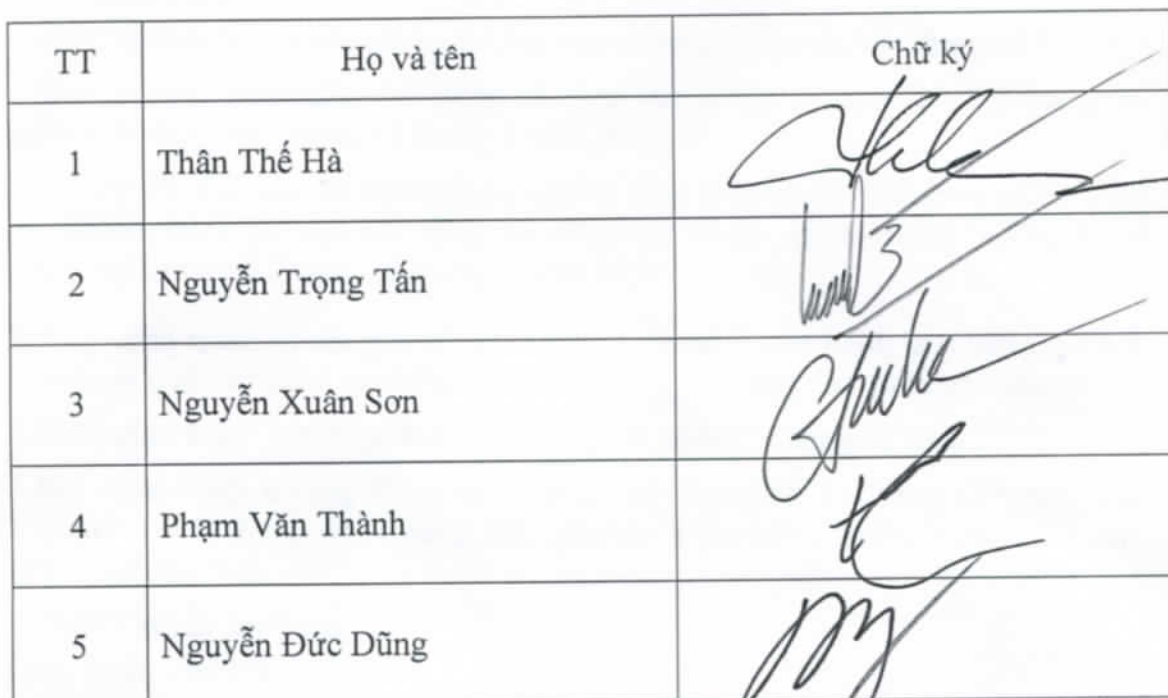 TT Họ và tên Chữ ký
1 Thân Thế Hà
2 Nguyễn Trọng Tấn
3 Nguyễn Xuân Sơn
4 Phạm Văn Thành
5 Nguyễn Đức Dũng